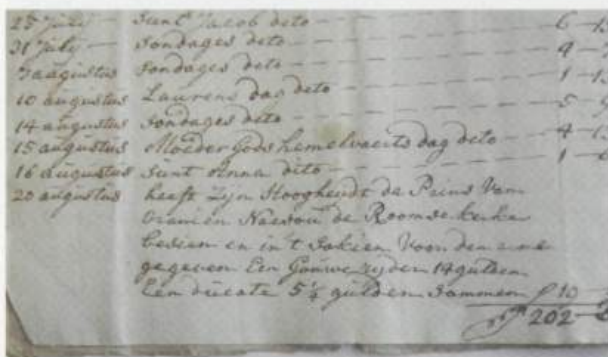 25 July Sunt Jacob deto 6
31 July Sondages deto 4
7 augustus Sondages deto 1
10 augustus Laurens dag deto 5
14 augustus Sondages deto 4
15 augustus Moeder Gods hemelvaerts dag deto 1
16 augustus Sunt Anna dito
20 augustus heeft Zyn Hoogheydt de Prins Van
Oranien Nassou de Roomse kerke
besien en in t Sakien Van den arme
gegeven Een Gouwe ryder 14 gulden
Een ducate 5 1/4 gulden Sammen
202